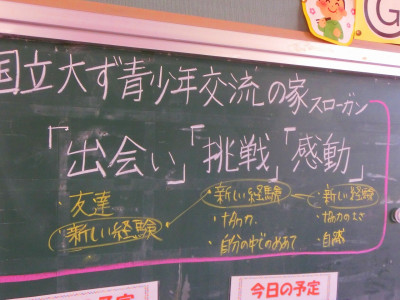 国立大ず青少年交流の家スローガン
「出会い」「挑戦」「感動」
・友達
新しい経験
・新しい経験
・協力
・自分の中でのめあて
・新しい経験
・協力のよさ
・自然
今日の予定
の予定
G